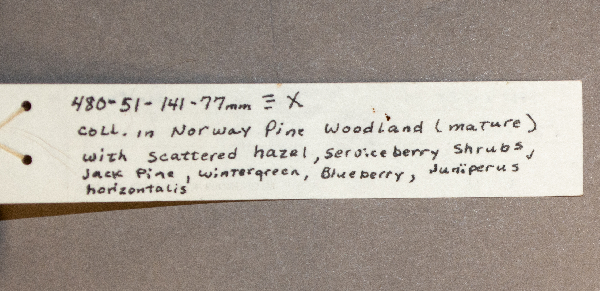 480-51-141-77mm ≡ X
coll. in Norway Pine Woodland (mature)
with scattered hazel, serviceberry shrubs,
Jack Pine, wintergreen, Blueberry, Juniperus
horizontalis